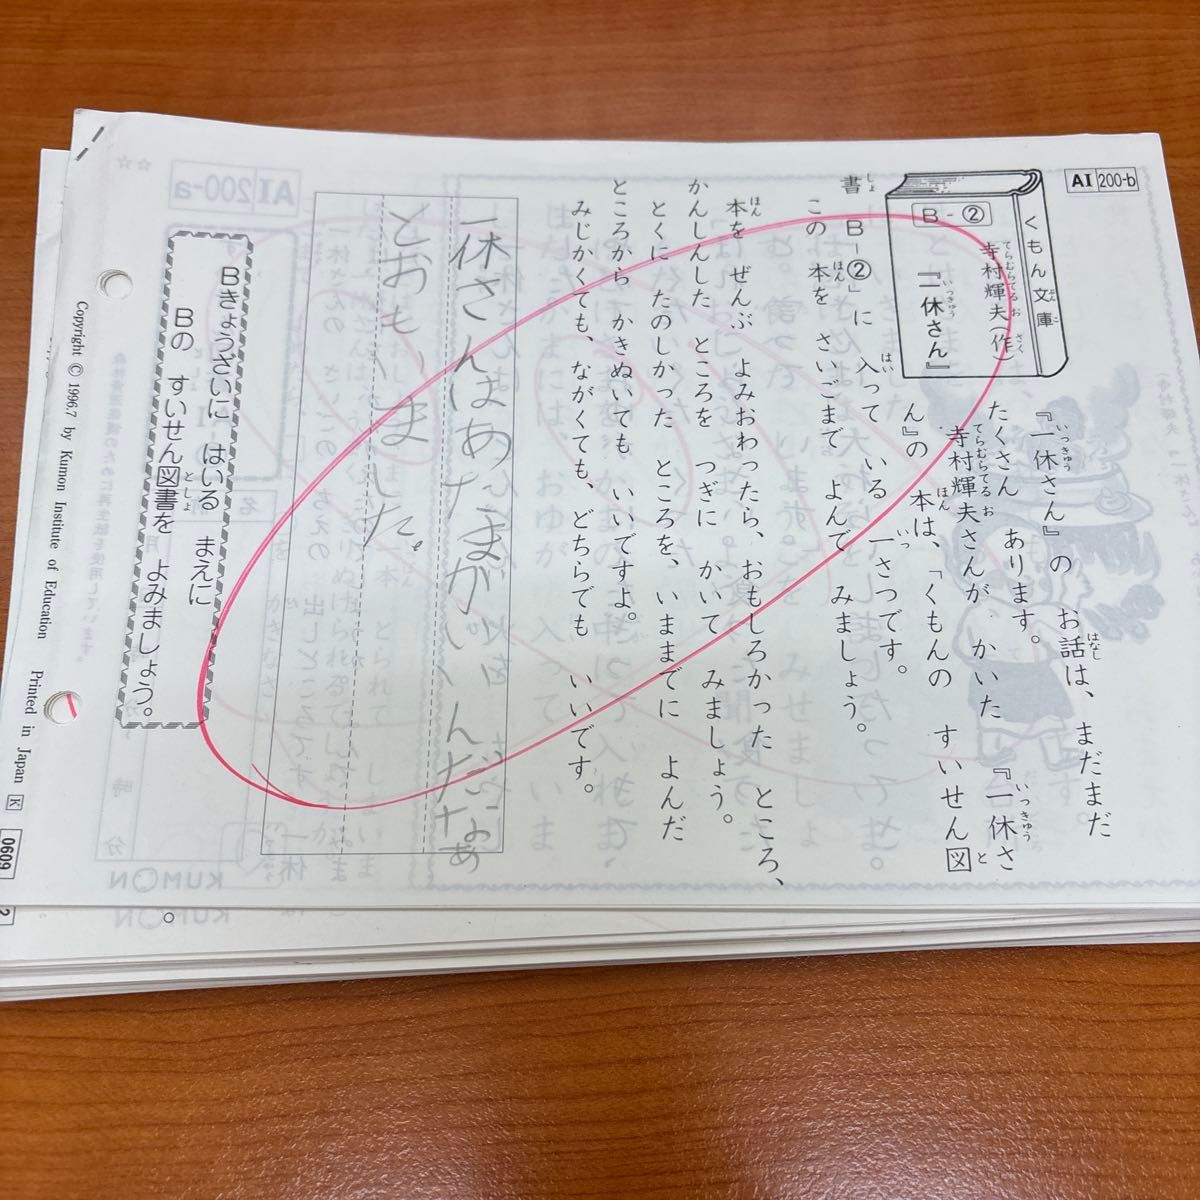 AI 200-b
くもん文庫
B-②
寺村輝夫(作)
『一休さん』
『一休さん』の お話は、まだまだ
たくさん あります。
寺村輝夫さんが かいた 『一休さ
ん』の 本は、「くもんの すいせん図
書 B-②」に 入って いる 一さつです。
この 本を さいごまで よんで みましょう。
本を ぜんぶ よみおわったら、おもしろかった ところ、
かんしんした ところを つぎに かいて みましょう。
とくに たのしかった ところを、いままでに よんだ
ところから かきぬいても いいですよ。
みじかくても、ながくても、どちらでも いいです。
一休さんはあたまがいいんだなあ
とおもいました。
Bきょうざいに はいる まえに
Bの すいせん図書を よみましょう。
Copyright © 1996.7 by Kumon Institute of Education Printed in Japan K 0609